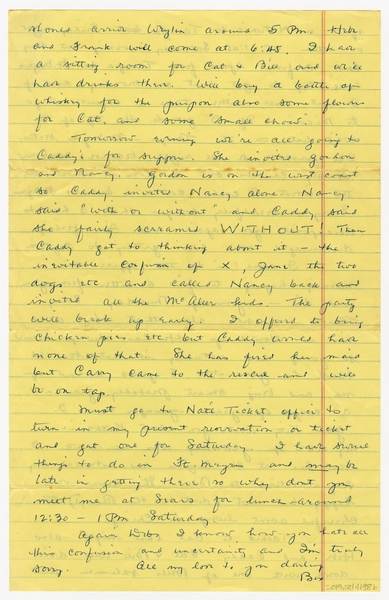 should arrive Weylin around 5 PM.
and Frank will come at 6:45. I have
a sitting room for Cat & Bill and we'll
have drinks there. Will buy a bottle of
whiskey for the purpose also some flowers
for Cat, and some "small chow".
Tomorrow evening we're all going to
Caddy's for supper. She invited Gordon
and Nancy. Gordon is on the west coast
so Caddy invited Nancy alone. Nancy
said "with or without" and Caddy said
she fairly screamed WITHOUT! Then
Caddy got to thinking about it – the
inevitable confusion of X, Jane the two
dogs etc and called Nancy back and
invited all the McAlur kids. The party
will break up early. I offered to bring
chicken pies etc but Caddy would have
none of that. She has fired her maid
but Carry came to the rescue and will
be on tap.
Must go to Nat'l Ticket office to
turn in my present reservation – or ticket
and get one for Saturday. I have some
things to do in Ft. Myers and may be
late in getting there so why don't you
meet me at Sears for lunch – around
12:30 – 1 PM Saturday.
Again Dibs I know how you hate all
this confusion and uncertainty and I'm truly
sorry. All my love to you darling